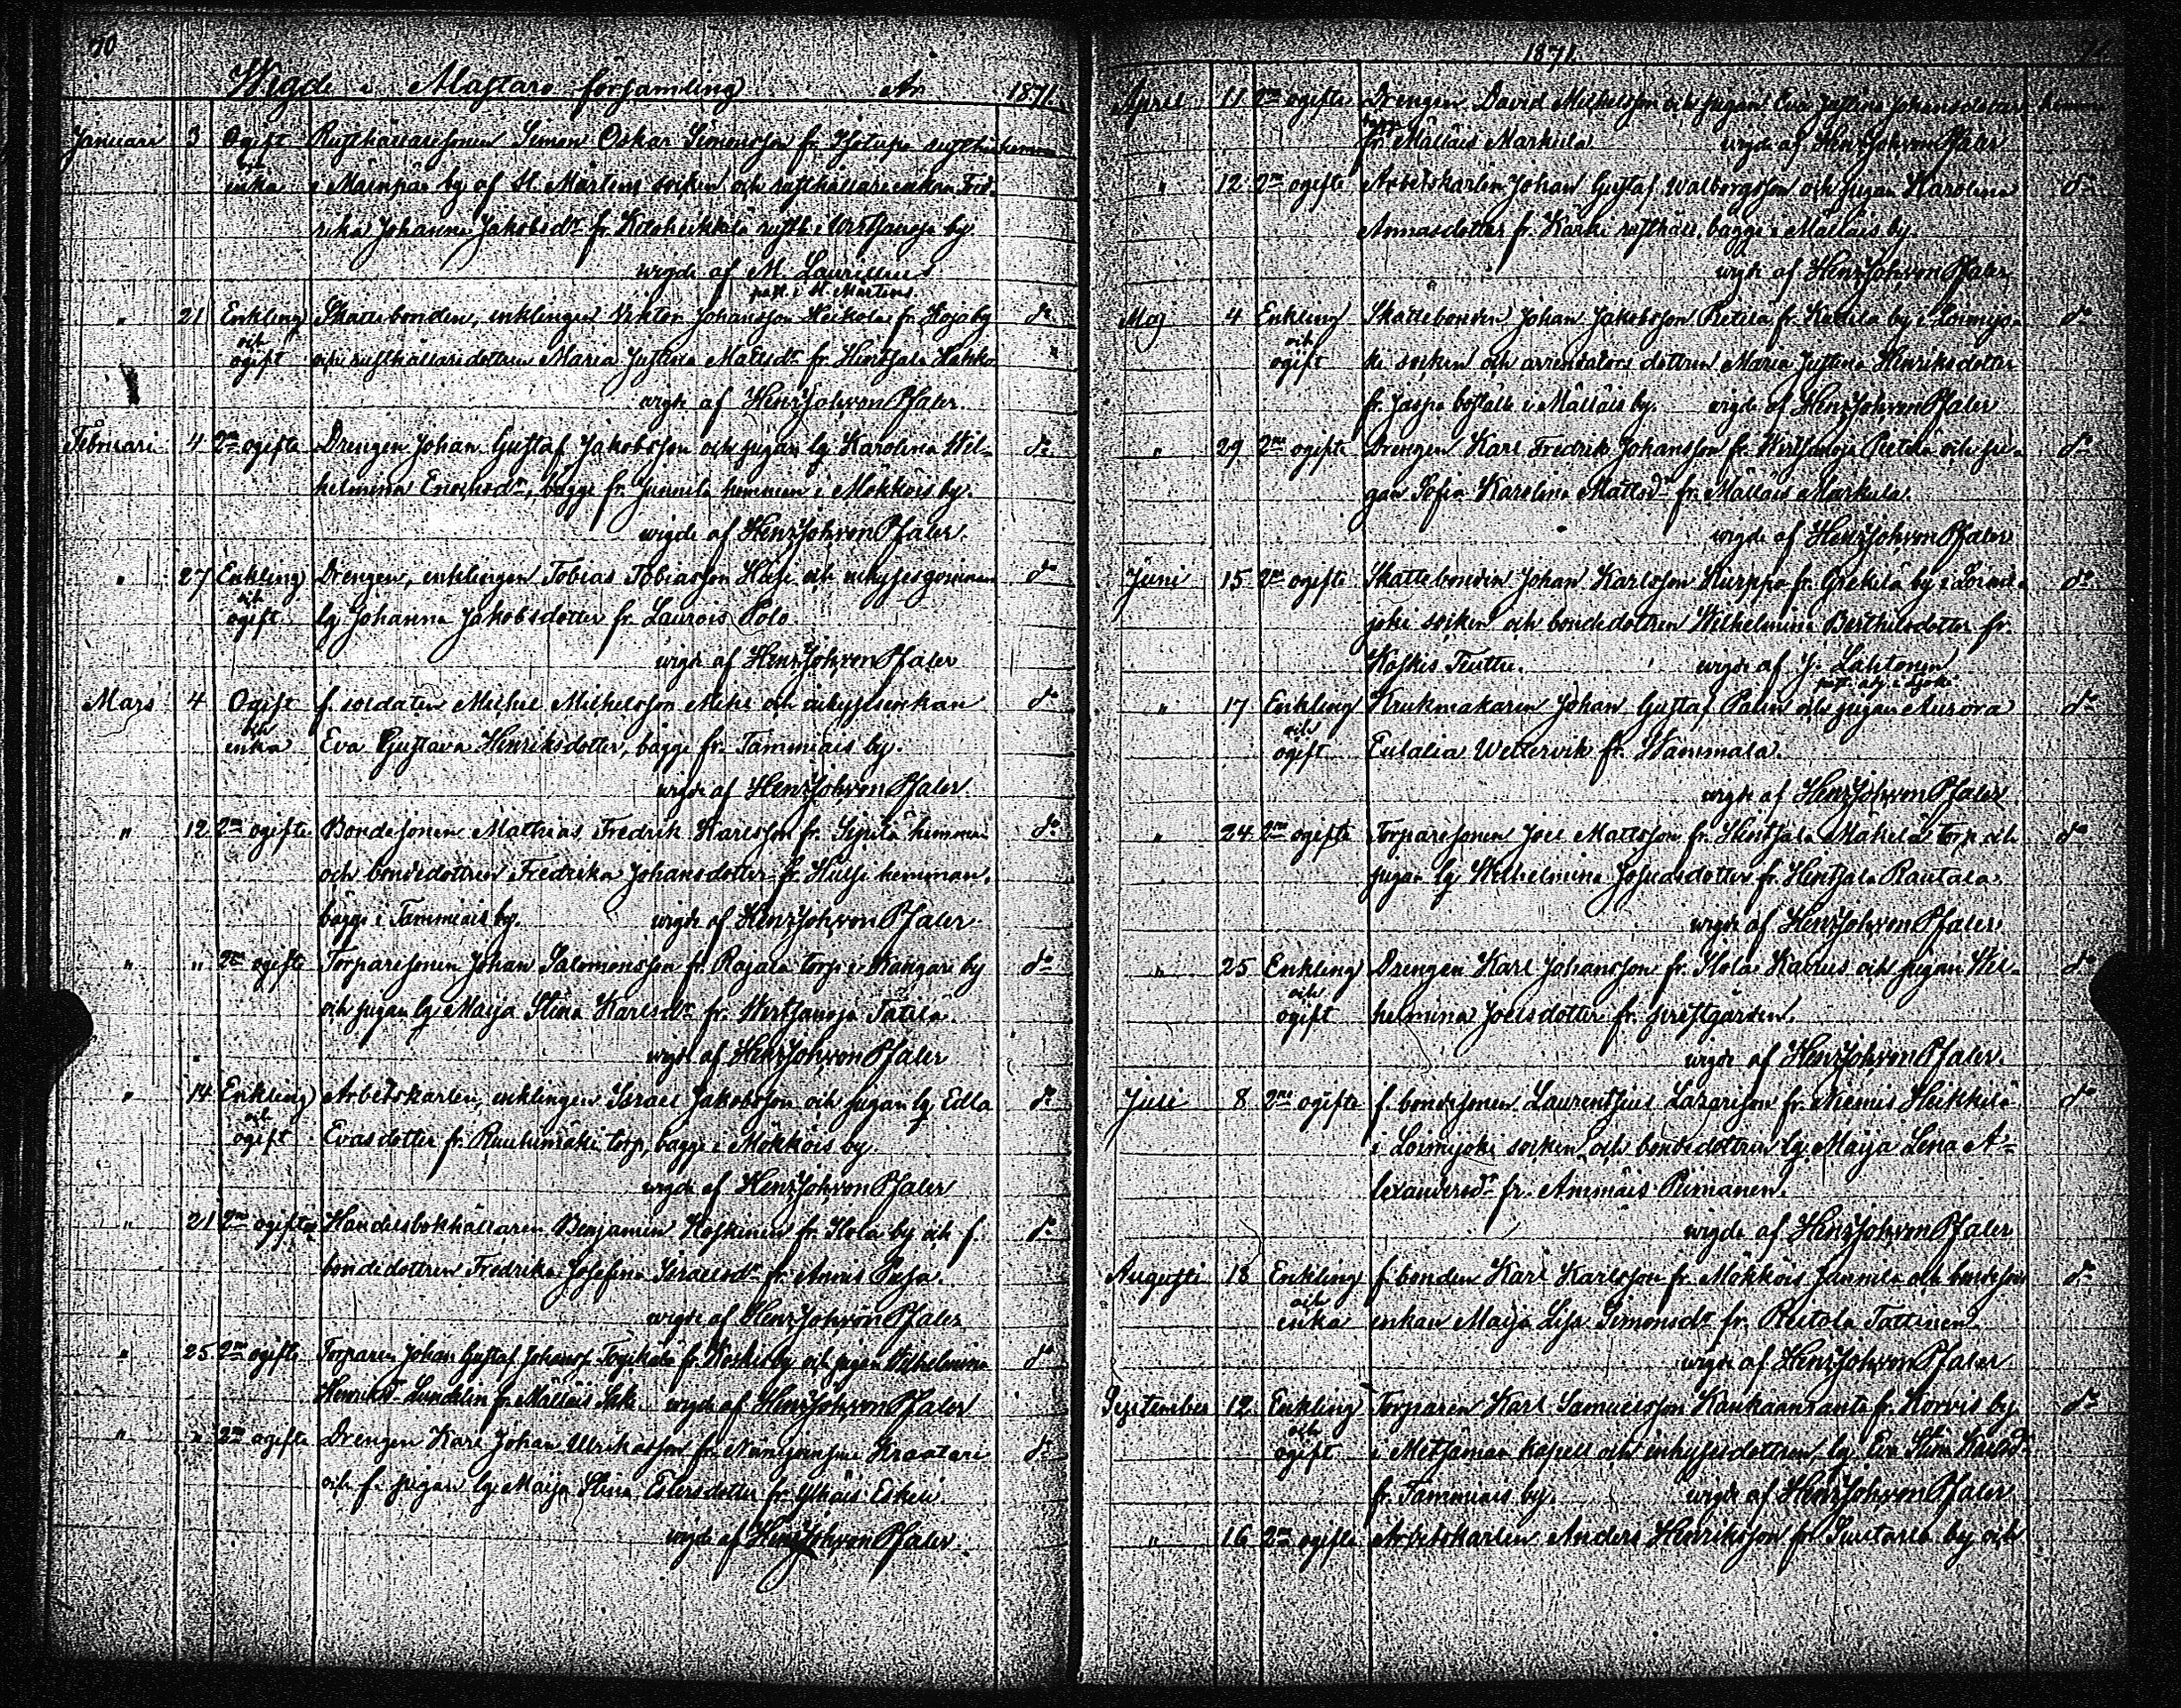 70
Wigde i Mastaro församling År 1871.
Januari 3 Ogift och enka Rusthållaresonen Simon Oskar Simonsson fr. rusth. hemma
i Mäenpää by af St. Mårtens socken och rusthållareenkan Fred-
rika Johanna Jakobsdr fr. Ketoheikkilä rusth. i Wirtsanoja by.
wigde af M. Laurenius
past. i St. Mårtens
" 21 Enkling och ogift Skattebonden, enklingen Viktor Johansson Heikola fr. Koja by do
och rusthållaredottren Maria Justina Matsdr fr. Hintsala Hakko
wigde af Henr. Joh. von Pfaler.
Februari 4 2ne ogifte Drengen Johan Gustaf Jakobsson och pigan lg. Karolina Wil- do
helmina Enochsdr, bägge fr. Junnila hemman i Mökköis by.
wigde af Henr. Joh. von Pfaler.
" 27 Enkling och ogift Drengen, enklingen Tobias Tobiasson Hasi och inhysesqvinnan do
lg. Johanna Jakobsdotter fr. Laurois Polo
wigde af Henr. Joh. von Pfaler
Mars 4 Ogift och enka f. soldaten Michel Michelsson Miki och inhysesenkan do
Eva Gustava Henriksdotter, bägge fr. Tammiais by.
wigde af Henr. Joh. von Pfaler.
" 12 2ne ogifte Bondesonen Mathias Fredrik Karlsson fr. Sipilä hemman do
och bondedottren Fredrika Johansdotter fr. hemman,
bägge i Tammiais by. wigde af Henr. Joh. von Pfaler
" " 2ne ogifte Torparesonen Johan Salomonsson fr. Rajala torp i Kangare by do
och pigan lg. Maija Stina Karlsdr fr. Wirtsanoja Tatila.
wigde af Henr. Joh. von Pfaler
" 14 Enkling och ogift Arbetskarlen, enklingen Israel Jakobsson och pigan lg. Edla do
Evasdotter fr. Ruuhimäki torp, bägge i Mökköis by
wigde af Henr. Joh. von Pfaler
" 21 2ne ogifte Handelsbokhållaren Benjamin Koskinen fr. Hola by och f. do
bondedottren Fredrika Josefina Israelsdr fr. Annis
wigde af Henr. Joh. von Pfaler
" 25 2ne ogifte Torparen Johan Gustaf Johanss. fr. Koskis by och pigan Wilhelmina do
Henriksdr Lundelin fr. Mälläis wigde af Henr. Joh. von Pfaler
" " 2ne ogifte Drengen Karl Johan Ulrikasson fr. Kraatari do
och f. pigan lg. Maija Stina Estersdotter fr. Ylhäis Eskeli.
wigde af Henr. Joh. von Pfaler
1871.
April 11 2ne ogifte Drengen David Michelsson och pigan Eva Justina Johansdotter hemma
bägge fr. Mälläis Markula wigde af Henr. Joh. von Pfaler
" 12 2ne ogifte Arbetskarlen Johan Gustaf Walborgsson och pigan Karolina do
Annasdotter fr. Karhi rusthåll, bägge i Mälläis by.
wigde af Henr. Joh. von Pfaler
Maj 4 Enkling och ogift Skattebonden Johan Jakobsson Pietilä fr. by i Loimijo- do
ki socken och arrendators dottren Maria Justina Henriksdotter
fr. Jaspo boställe i Mälläis by. wigde af Henr. Joh. von Pfaler
" 29 2ne ogifte Drengen Karl Fredrik Johansson fr. Wirtsanoja Pietilä och pi- do
gan Sofia Karolina Mattsdr fr. Mälläis Markula.
wigde af Henr. Joh. von Pfaler
Juni 15 2ne ogifte Skattebonden Johan Karlsson Kurppa fr. by i Loimi- do
joki socken och bondedottren Wilhelmina Berthilsdotter fr.
Koskis Teuttu. wigde af J. Lahtonen
past. adj. i Loimijoki
" 17 Enkling och ogift Krukmakaren Johan Gustaf Palin och pigan Aurora do
Eulalia Wettervik fr. Wammala.
wigde af Henr. Joh. von Pfaler
" 24 2ne ogifte Torparesonen Joel Mattsson fr. Hintsala Mäkelä torp och do
pigan lg. Wilhelmina Josuasdotter fr. Hintsala Rautala.
wigde af Henr. Joh. von Pfaler
" 25 Enkling och ogift Drengen Karl Johansson fr. Hola och pigan Wil- do
helmina Joelsdotter fr. prestgården.
wigde af Henr. Joh. von Pfaler.
Juli 8 2ne ogifte f. bondesonen Laurentsius Lazarisson fr. Niemis Heikkilä do
i Loimijoki socken och bondedottren lg. Maija Lena A-
lexandersdr fr. Ammäis Piimänen.
wigde af Henr. Joh. von Pfaler
Augusti 18 Enkling och enka f. bonden Karl Karlsson fr. Mökköis Junnila och bondesons- do
enkan Maija Lisa Simonsdr fr. Ristola Tattinen.
wigde af Henr. Joh. von Pfaler
September 12 Enkling och ogift Torparen Karl Samuelsson Kaukaanranta fr. Korvis by do
i Metsämaa kapell och inhysesdottren, lg. Eva Stina Karlsdr
fr. Tammiais by. wigde af Henr. Joh. von Pfaler
" 16 2ne ogifte Arbetskarlen Anders Henriksson fr. by och